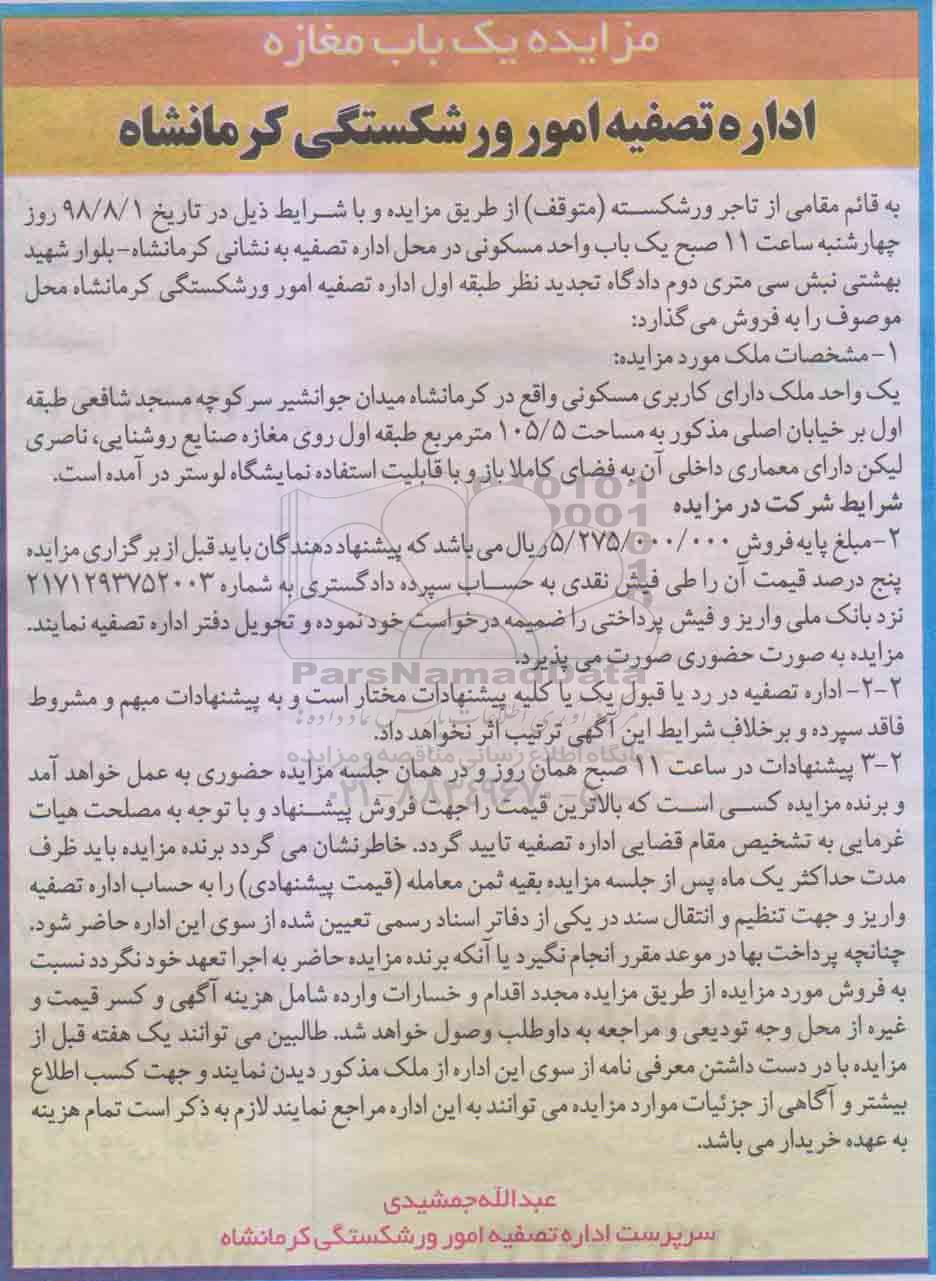 مزایده یک باب مغازه
اداره تصفیه امور ورشکستگی کرمانشاه
به قائم مقامی از تاجر ورشکسته (متوقف) از طریق مزایده و با شرایط ذیل در تاریخ ۹۸/۸/۱ روز
چهارشنبه ساعت ۱۱ صبح یک باب واحد مسکونی در محل اداره تصفیه به نشانی کرمانشاه-بلوار شهید
بهشتی نبش سی متری دوم دادگاه تجدید نظر طبقه اول اداره تصفیه امور ورشکستگی کرمانشاه محل
موصوف را به فروش می گذارد:
۱- مشخصات ملک مورد مزایده:
یک واحد ملک دارای کاربری مسکونی واقع در کرمانشاه میدان جوانشیر سر کوچه مسجد شافعی طبقه
اول بر خیابان اصلی مذکور به مساحت ۱۰۵/۵ مترمربع طبقه اول روی مغازه صنایع روشنایی، ناصری
لیکن دارای معماری داخلی آن به فضای کاملا باز و با قابلیت استفاده نمایشگاه لوستر در آمده است.
شرایط شرکت در مزایده
۲- مبلغ پایه فروش ۵/۲۷۵/۰۰۰/۰۰۰ ریال می باشد که پیشنهاد دهندگان باید قبل از برگزاری مزایده
پنج درصد قیمت آن را طی فیش نقدی به حساب سپرده دادگستری به شماره ۲۱۷۱۲۹۳۷۵۲۰۰۳
نزد بانک ملی واریز و فیش پرداختی را ضمیمه درخواست خود نموده و تحویل دفتر اداره تصفیه نمایند.
مزایده به صورت حضوری صورت می پذیرد.
۲-۲- اداره تصفیه در رد یا قبول یک یا کلیه پیشنهادات مختار است و به پیشنهادات مبهم و مشروط
فاقد سپرده و برخلاف شرایط این آگهی ترتیب اثر نخواهد داد.
۳-۲ پیشنهادات در ساعت ۱۱ صبح همان روز و در همان جلسه مزایده حضوری به عمل خواهد آمد
و برنده مزایده کسی است که بالاترین قیمت را جهت فروش پیشنهاد و با توجه به مصلحت هیات
غرمایی به تشخیص مقام قضایی اداره تصفیه تایید گردد. خاطرنشان می گردد برنده مزایده باید ظرف
مدت حداکثر یک ماه پس از جلسه مزایده بقیه ثمن معامله (قیمت پیشنهادی) را به حساب اداره تصفیه
واریز و جهت تنظیم و انتقال سند در یکی از دفاتر اسناد رسمی تعیین شده از سوی این اداره حاضر شود.
چنانچه پرداخت بها در موعد مقرر انجام نگیرد یا آنکه برنده مزایده حاضر به اجرا تعهد خود نگردد نسبت
به فروش مورد مزایده از طریق مزایده مجدد اقدام و خسارات وارده شامل هزینه آگهی و کسر قیمت و
غیره از محل وجه تودیعی و مراجعه به داوطلب وصول خواهد شد. طالبین می توانند یک هفته قبل از
مزایده با در دست داشتن معرفی نامه از سوی این اداره از ملک مذکور دیدن نمایند و جهت کسب اطلاع
بیشتر و آگاهی از جزئیات موارد مزایده می توانند به این اداره مراجع نمایند لازم به ذکر است تمام هزینه
به عهده خریدار می باشد.
عبدالله جمشیدی
سرپرست اداره تصفیه امور ورشکستگی کرمانشاه
ParsNamadData
پایگاه اطلاع رسانی مناقصه و مزایده
۰۲۱-۸۸۳۴۹۶۷۰-۵